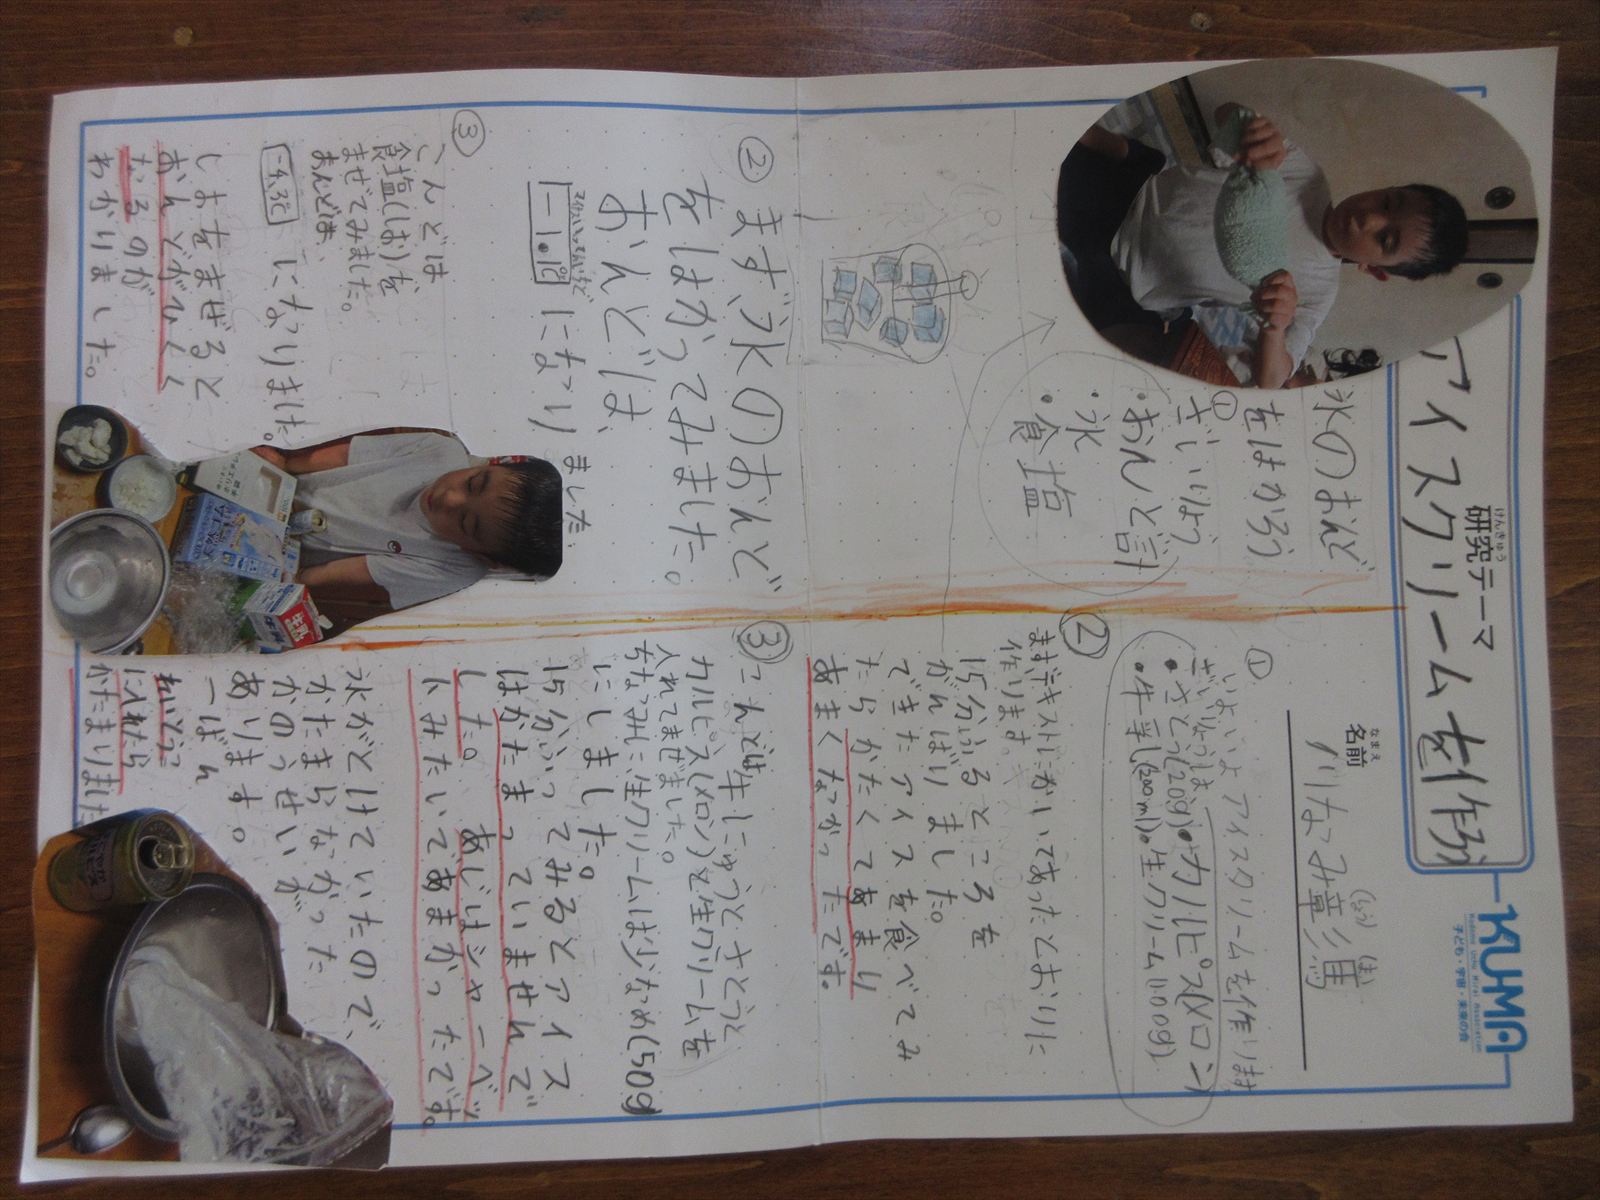 研究テーマ
けんきゅう
アイスクリームを作ろう
KUMA
Kodomo Uchu Mirai Association
子ども・宇宙・未来の会
名前
なまえ
川なみ章彡馮
氷のおんど
をはかろう
①
ざいりょう
・おんど計
・氷
・食塩
② まず氷のおんど
をはかってみました。
おんどは、
-1.1℃ になり
ました
③
こんどは
食塩(しお)を
まぜてみました。
おんどは、
になりました。
しおをまぜると
おんどがひくく
なるのが
わかりました。
① いよいよアイスクリームを作ります
ざいりょうは
・さとう(20g)・カルピス(メロン)
・牛乳(200ml)・生クリーム(100g)
②
まずテキストにかいてあったとおりに
作ります。
15分ふるところを
がんばりました。
できたアイスを食べてみ
たらかたくてあまり
あまくなかったです。
③ こんどは牛にゅうとさとうと
カルピス(メロン)と生クリームを
入れてまぜました。
ちなみに生クリームは少なめ(50g)
にしました。
15分ふってみるとアイス
はかたまっていませんで
した。あじはシャーベッ
トみたいであまかったです。
氷がとけていたので、
かたまらなかった
かのうせいが
あります。
一ばん
れいとうこ
に入れたら
かたまりました